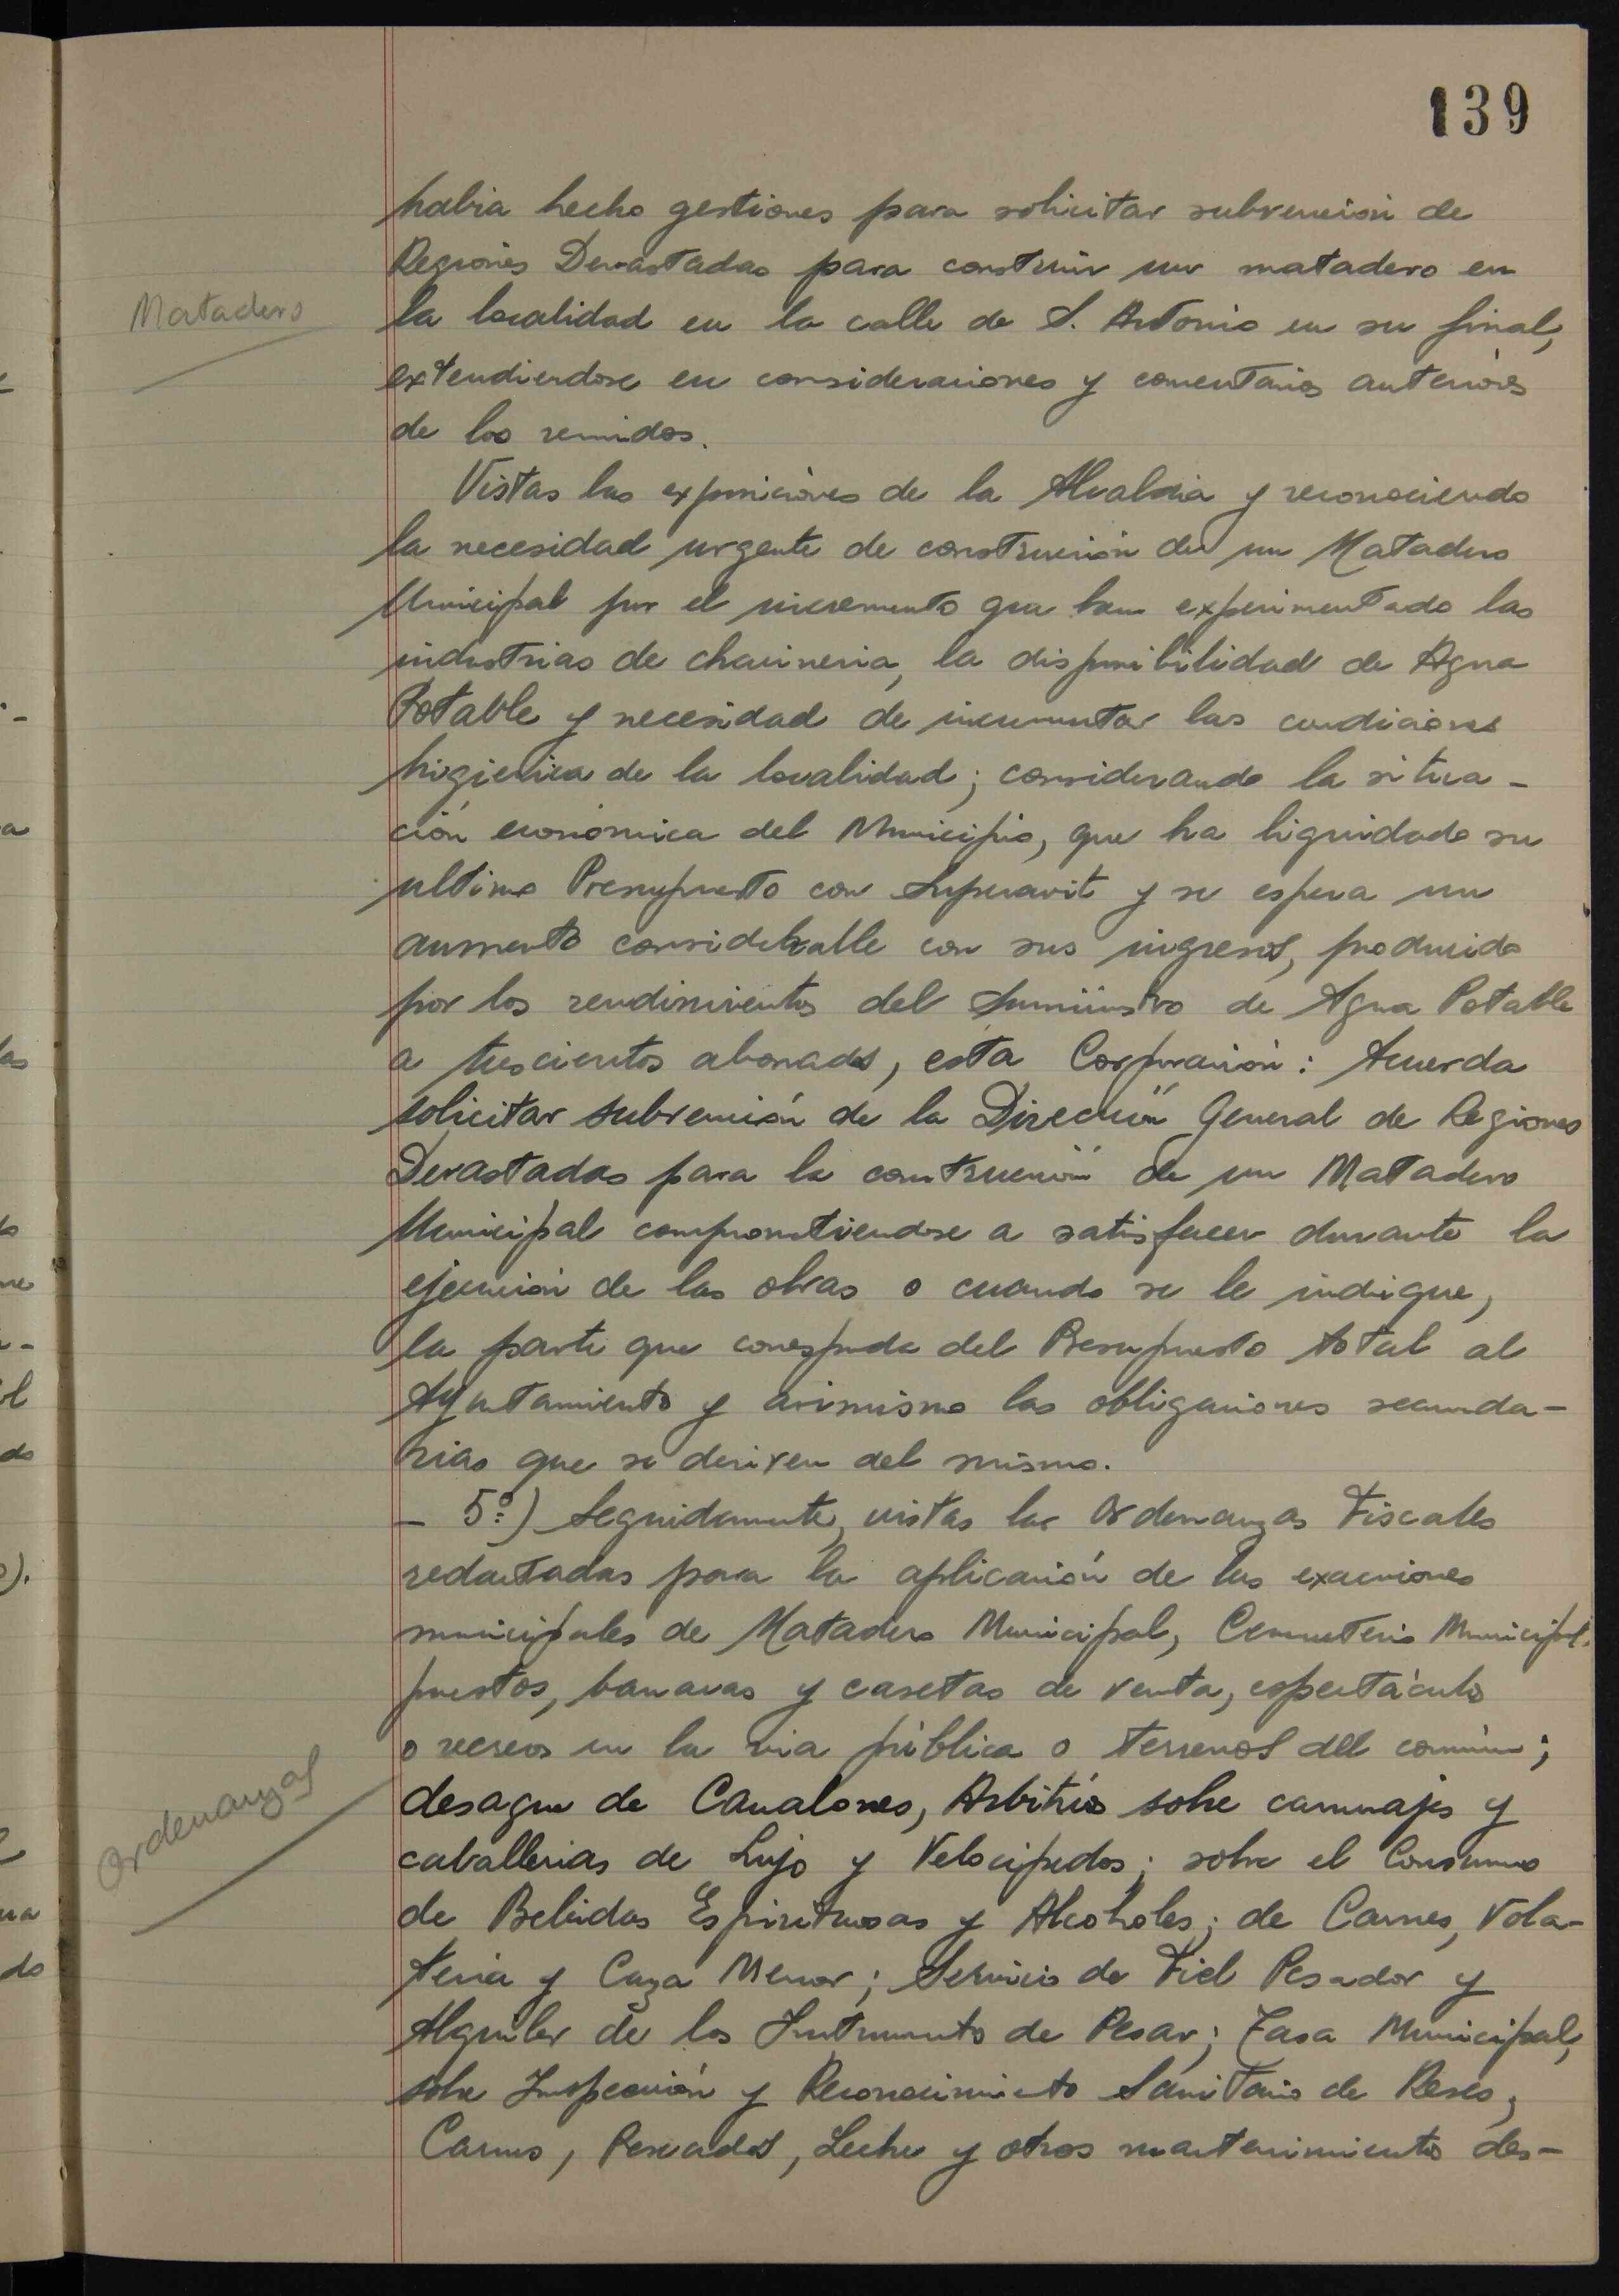 139
habia hecho gestiones para solicitar subvención de
Regiones Devastadas para construir un matadero en
Matadero
la localidad en la calle de S. Antonio en su final,
extendiendose en consideraciones y comentarios anteriores
de los reunidos.
Vistas las exposiciones de la Alcaldia y reconociendo
la necesidad urgente de construcción de un Matadero
Municipal por el incremento que han experimentado las
industrias de chacineria, la disponibilidad de Agua
Potable y necesidad de incrementar las condiciones
higienica de la localidad; considerando la situa-
ción economica del Municipio, que ha liquidado su
ultimo Presupuesto con Superavit y se espera un
aumento considerable con sus ingresos, producido
por los rendimientos del Suministro de Agua Potable
a trescientos abonados, esta Corporación: Acuerda
solicitar subvención de la Dirección General de Regiones
Devastadas para la construcción de un Matadero
Municipal comprometiendose a satisfacer durante la
ejecución de las obras o cuando se le indique,
la parte que corresponda del Presupuesto total al
Ayuntamiento y asimismo las obligaciones secunda-
rias que se deriven del mismo.
- 5º) Seguidamente, vistas las Ordenanzas Fiscales
redactadas para la aplicación de las exacciones
municipales de Matadero Municipal, Cementerio Municipal,
puestos, barracas y casetas de venta, espectáculo
o recreos en la via pública o terrenos del común;
Ordenanzas
desague de Canalones, Arbitrio sobre carruajes y
caballerias de Lujo y Velocipedos; sobre el Consumo
de Bebidas Espirituosas y Alcoholes; de Carnes, Vola-
teria y Caza Menor; Servicio de Fiel Pesador y
Alquiler de los Instrumento de Pesar; Tasa Municipal,
sobre Inspección y Reconocimiento Sanitario de Reses,
Carnes, Pescados, Leche y otros mantenimiento des-